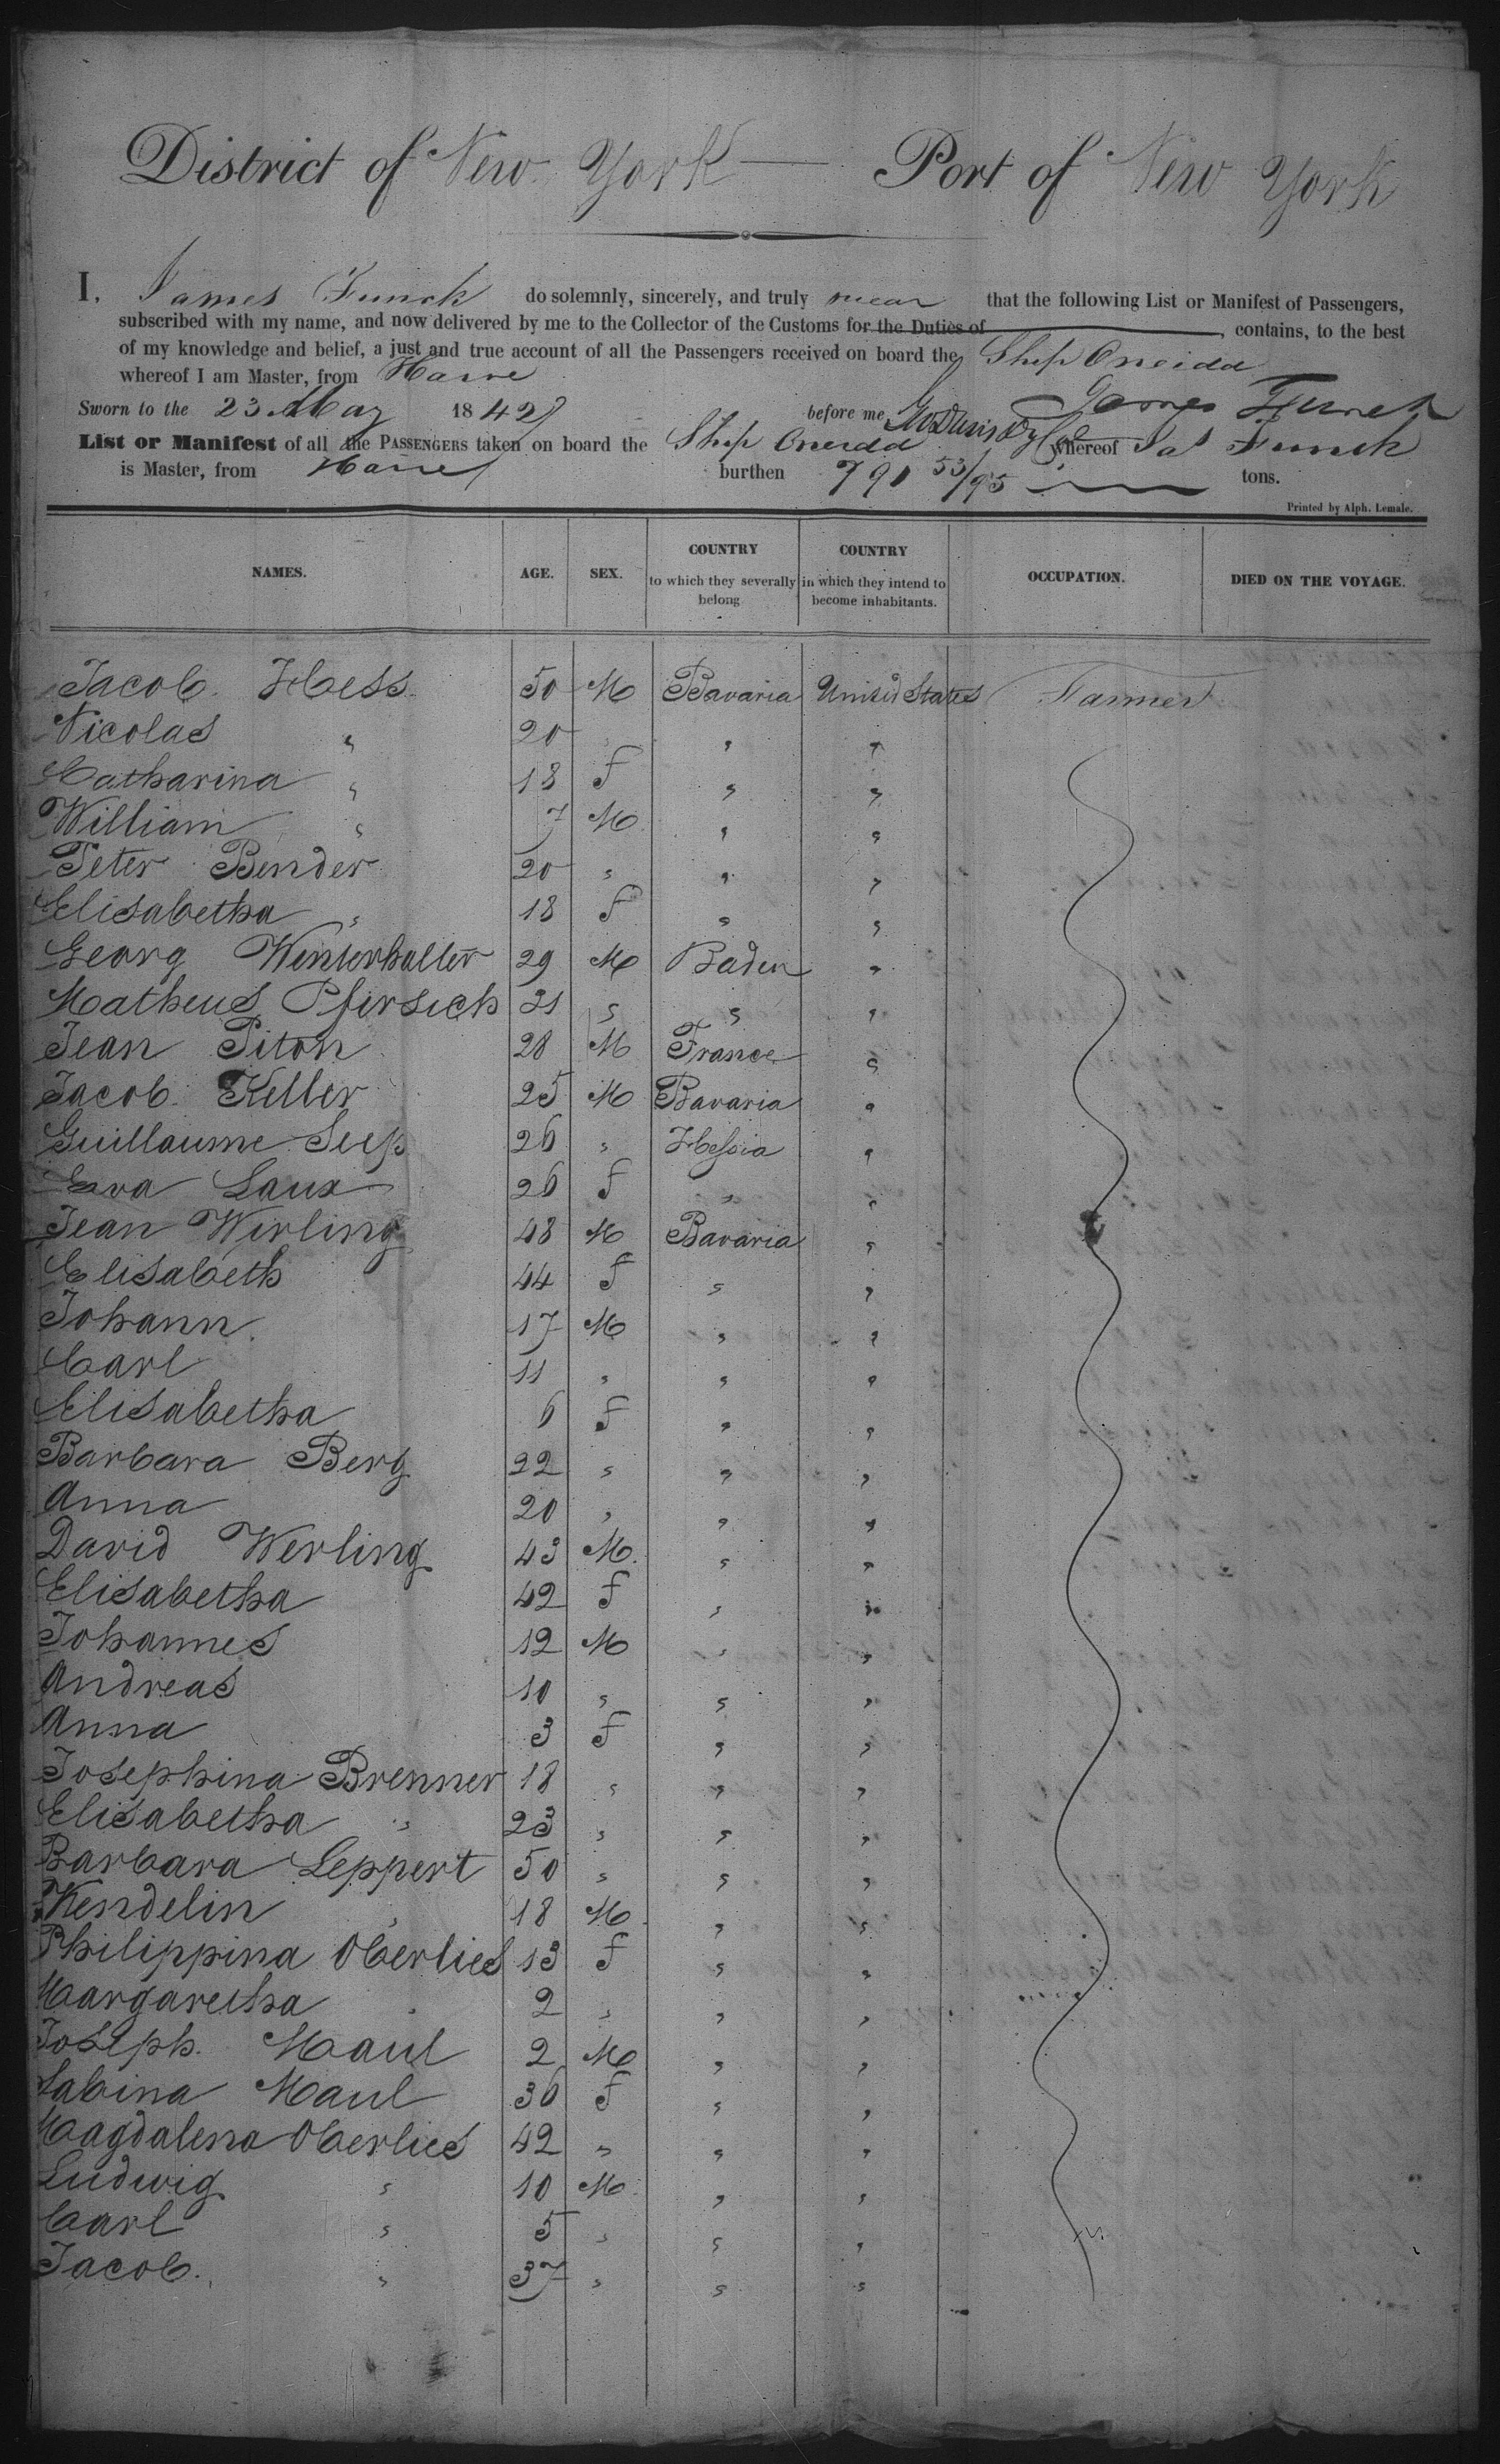 District of New York — Port of New York
I, James Funck do solemnly, sincerely, and truly swear that the following List or Manifest of Passengers,
subscribed with my name, and now delivered by me to the Collector of the Customs for the Duties of , contains, to the best
of my knowledge and belief, a just and true account of all the Passengers received on board the Ship Oneida
whereof I am Master, from Havre
Sworn to the 23 May 1842 before me James Funck
List or Manifest of all the PASSENGERS taken on board the Ship Oneida whereof Jas Funck
is Master, from Havre burthen 791 53/95 tons.
Printed by Alph. Lemale.
NAMES. AGE. SEX. COUNTRY to which they severally belong COUNTRY in which they intend to become inhabitants. OCCUPATION. DIED ON THE VOYAGE.
Jacob Hess 50 M Bavaria United States Farmer
Nicolas " 20 " " "
Catharina " 18 f " "
William " 7 M " "
Peter Bender 20 " " "
Elisabetha " 18 f " "
Georg Winterhalter 29 M Baden "
Matheus Pfirsich 31 " " "
Jean Piton 28 M France "
Jacob Keller 25 M Bavaria "
Guillaume Seep 26 " Hessia "
Eva Laux 26 f " "
Jean Wirling 48 M Bavaria "
Elisabeth 44 f " "
Johann 17 M " "
Carl 11 " " "
Elisabetha 6 f " "
Barbara Berg 22 " " "
Anna 20 " " "
David Werling 43 M " "
Elisabetha 42 f " "
Johannes 12 M " "
Andreas 10 " " "
Anna 3 f " "
Josephina Brenner 18 " " "
Elisabetha " 23 " " "
Barbara Leppert 50 " " "
Wendelin " 18 M " "
Philippina Oberlies 13 f " "
Margaretha 2 " " "
Joseph Maul 2 M " "
Sabina Maul 36 f " "
Magdalena Oberlies 42 " " "
Ludwig " 10 M " "
Carl " 5 " " "
Jacob " 37 " " "